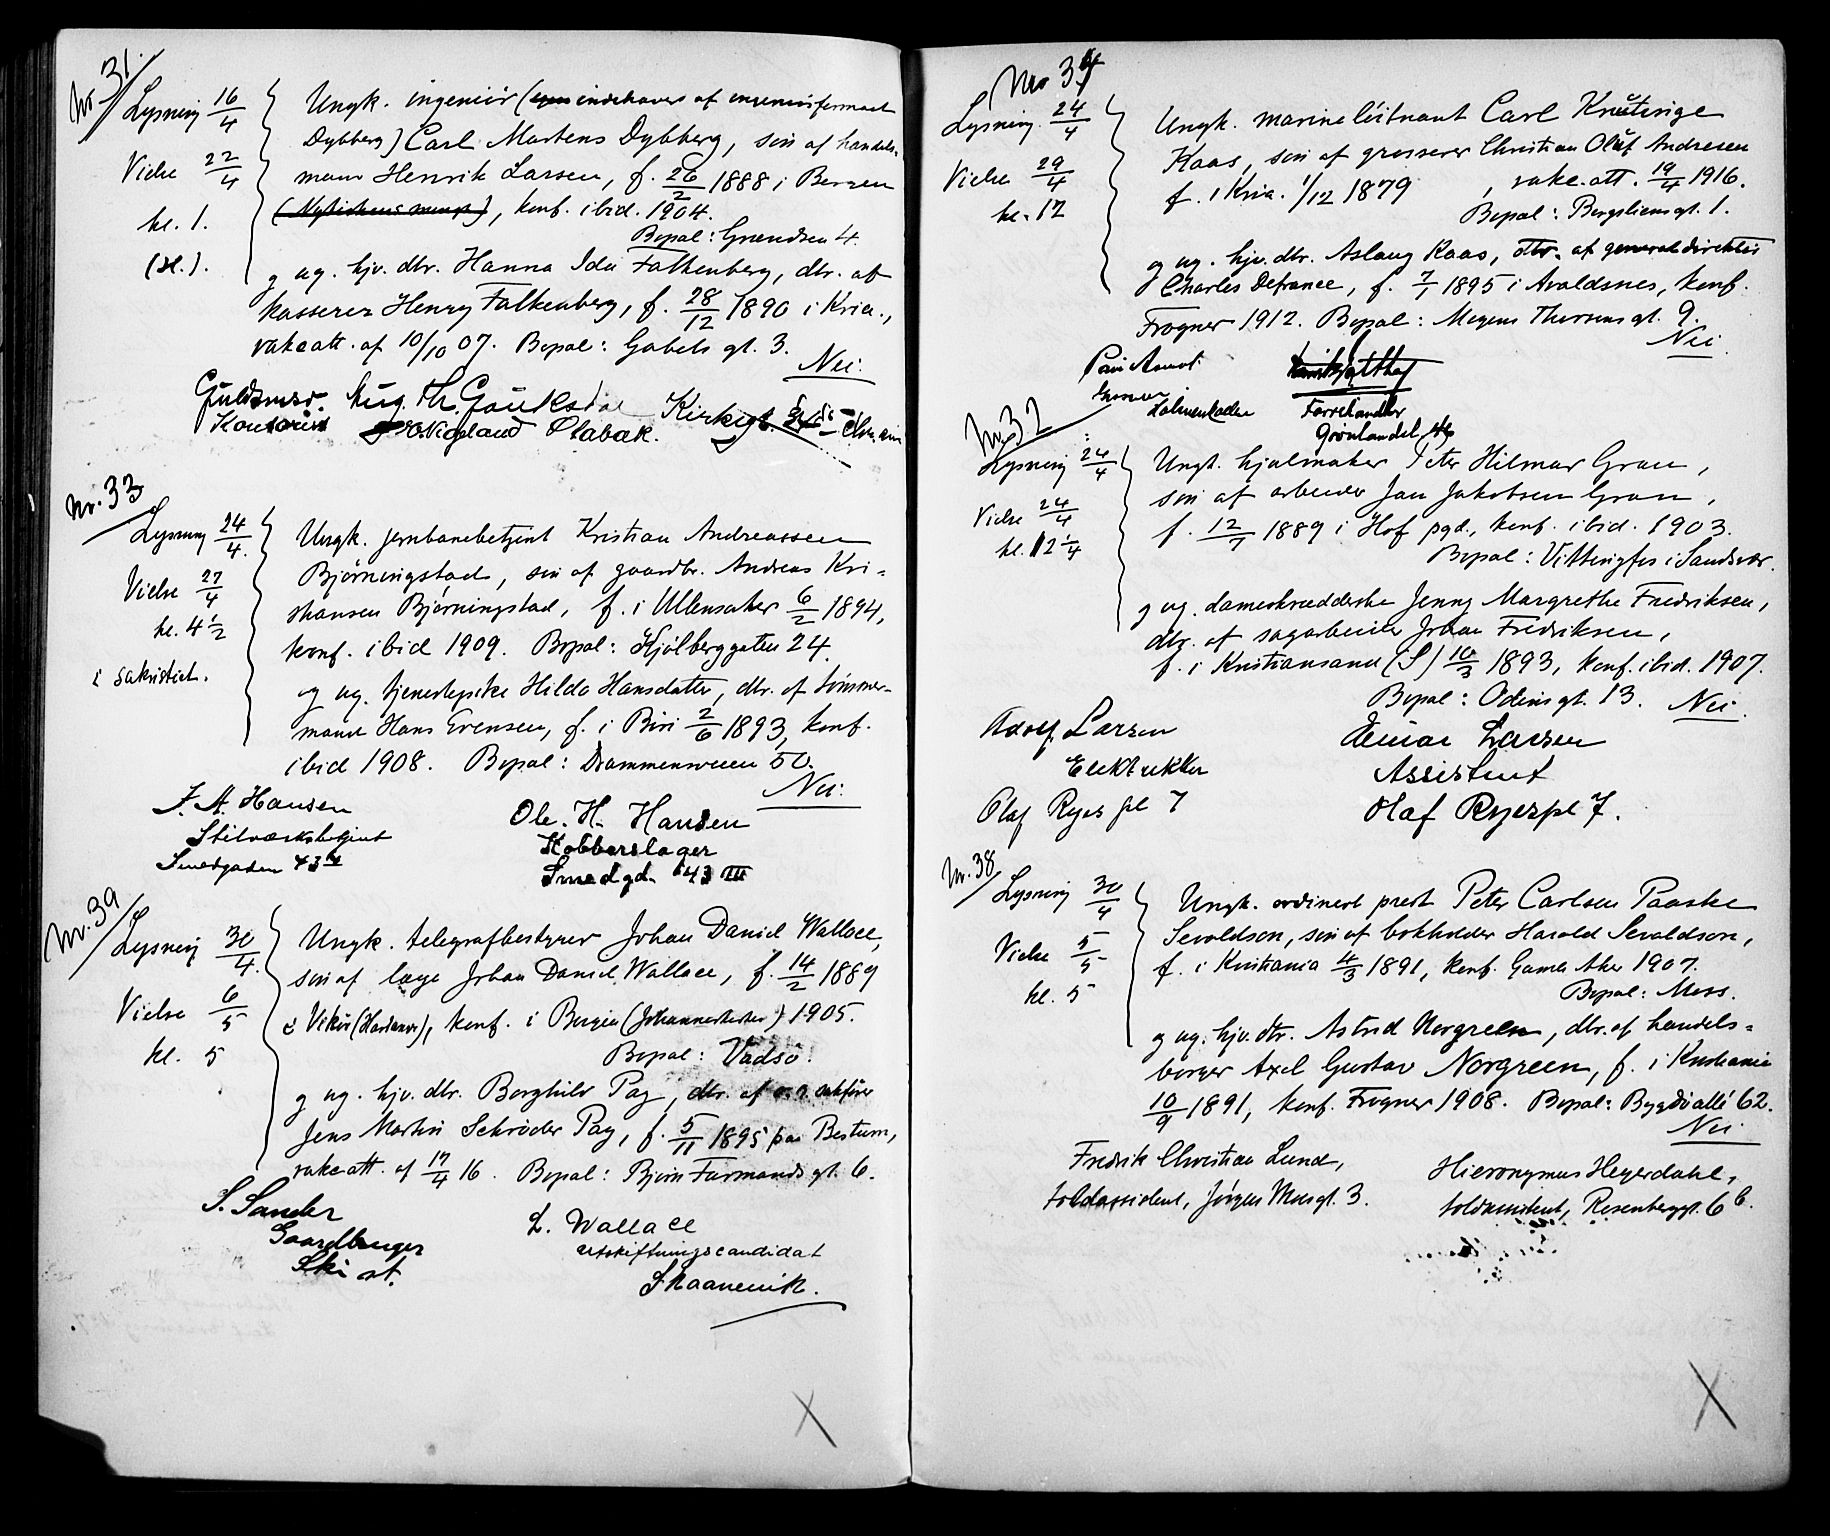 Nr. 31.
Lysning 16/4
Vielse 22/4
kl. 1.
Ungk. ingeniör (indehaver af ingeniörfirmaet
Dybberg) Carl Martens Dybberg, sön af handels-
mann Henrik Larsen, f. 26/2 1888 i Bergen
konf. ibid. 1904.
Bopæl: Grændsen 4.
og ug. hjv. dtr. Hanna Ida Falkenberg, dtr. af
kasserer Henry Falkenberg, f. 28/12 1890 i Kria.,
vakc.att. af 10/10 07. Bopæl: Gabels gt. 3.
Nei.
Aug. Th.
Kontorist
Kirkegt.
Nr. 33
Lysning 24/4.
Vielse 27/4
kl. 4 1/2
i sakristiet.
Ungk. jernbanebetjent Kristian Andreassen
Bjørningstad, sön af gaardbr. Andreas Kri-
stiansen Bjørningstad, f. i Ullensaker 6/2 1894,
konf. ibid 1909. Bopæl: Kjölberggaten 24.
og ug. tjenestepike Hilda Hansdatter, dtr. af tömmer-
mann Hans Evensen, f. i Biri 2/6 1893, konf.
ibid 1908. Bopæl: Drammensveien 50.
Nei.
J. A. Hansen
Smedgaden 43
Ole. H. Hansen
Kobberslager
Smedgd. 43 III
Nr. 39
Lysning 30/4.
Vielse 6/5
kl. 5
Ungk. telegrafbestyrer Johan Daniel Wallace,
sön af læge Johan Daniel Wallace, f. 14/2 1889
i Vikör (Hardanger), konf. i Bergen (Johanneskirken) 1905.
Bopæl: Vadsö.
og ug. hjv. dtr. Borghild Pay, dtr. af o.r. sakförer
Jens Martin Schrøder Pay, f. 5/11 1895 paa Bestum,
vakc.att. af 17/4 16. Bopæl: Bjørn Farmands gt. 6.
S. Sander
Gaardbruger
Ski st.
L. Wallace
utskiftningscandidat
Skaanevik.
Nr. 34
Lysning 24/4
Vielse 29/4
kl. 12
Ungk. marinelöitnant Carl
Kaas, sön af grosserer Christian Oluf Andresen
f. i Kria. 1/12 1879, vakc.att. 19/4 1916.
Bopæl: Bergsliensgt. 1.
og ug. hjv. dtr. Aslaug Kaas, dtr. af generaldirektör
Charles Defrance, f. 7/1 1895 i Avaldsnes, konf.
Frogner 1912. Bopæl: Mogens Thorsensgt. 9.
Nei.
Farvehandler
Nr. 32
Lysning 24/4
Vielse 24/4
kl. 12 1/4
Ungk. hjulmaker Peter Hilmar Gran,
sön af arbeider Jan Jakobsen Gran,
f. 12/7 1889 i Hof pgd., konf. ibid. 1903.
Bopæl: Vittingfos i Sandsvær.
og ug. dameskrædderske Jenny Margrethe Fredriksen,
dtr. af sagarbeider Johan Fredriksen,
f. i Kristiansand (S) 10/3 1893, konf. ibid. 1907.
Bopæl: Odinsgt. 13. Nei.
Adolf Larsen
Elektrikker
Olaf Ryes pl 7
Einar Larsen
Assistent
Olaf Ryespl 7.
Nr. 38
Lysning 30/4
Vielse 5/5
kl. 5
Ungk. ordinert prest Peter Carlsen Paaske
Sevaldson, sön af bokholder Harald Sevaldson,
f. i Kristiania 4/3 1891, konf. Gamle Aker 1907.
Bopæl: Moss.
og ug. hjv. dtr. Astrid Norgreen, dtr. af handels-
borger Axel Gustav Norgreen, f. i Kristiania
10/9 1891, konf. Frogner 1908. Bopæl: Bygdö allé 62.
Nei.
Fredrik Christian Lund,
toldassistent, Jørgen Moesgt. 3.
Hieronymus Heyerdahl,
toldassistent, Rosenborggt. 6 b.